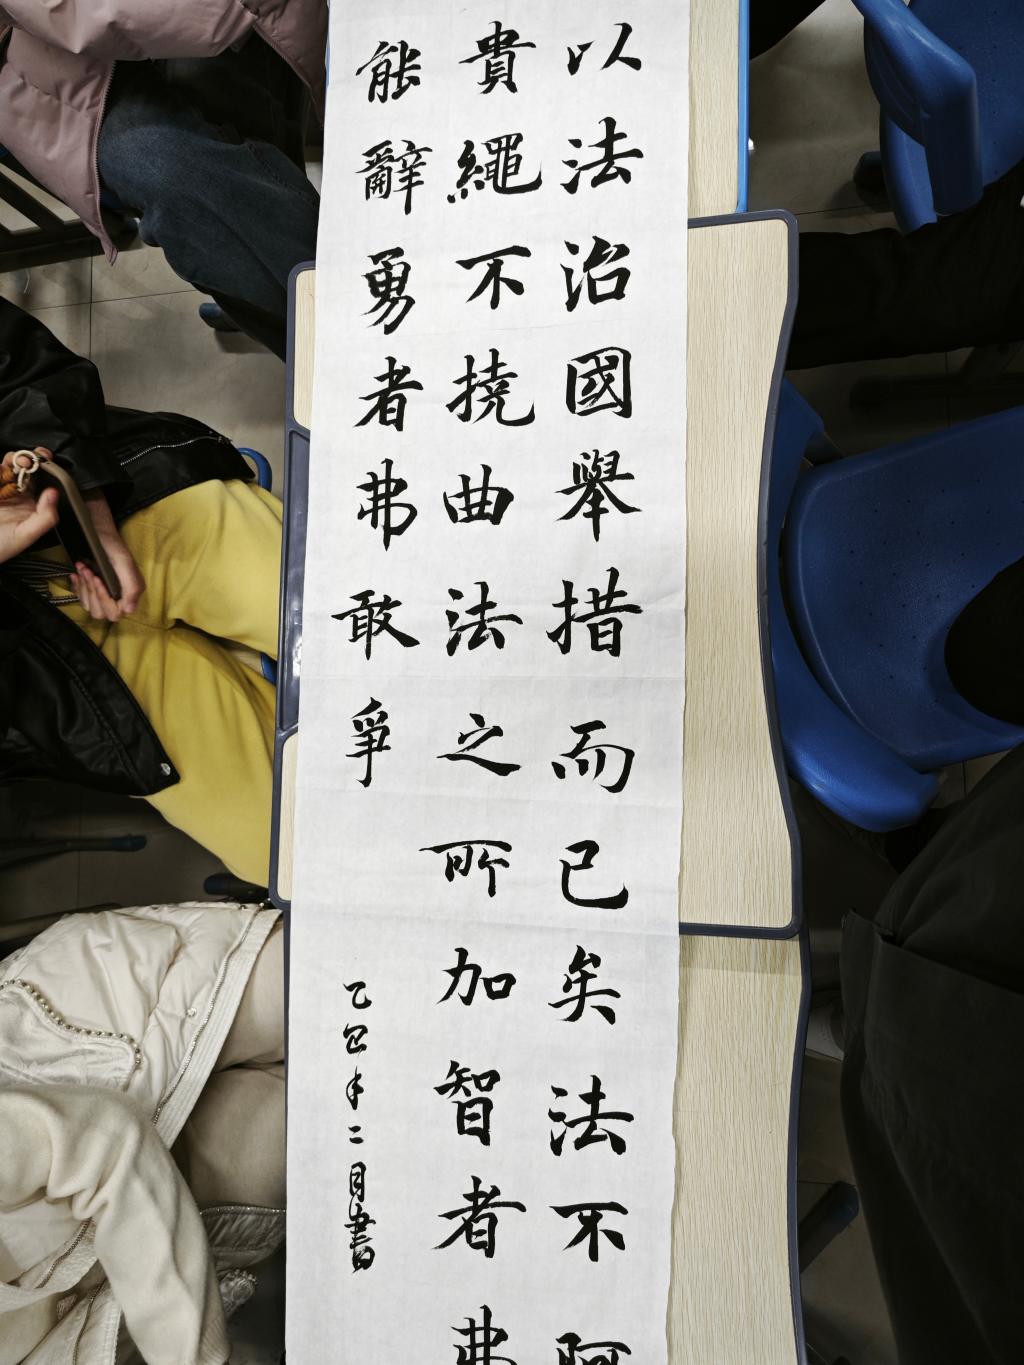 以法治國舉措而已矣法不阿
貴繩不撓曲法之所加智者弗
能辭勇者弗敢爭
乙巳年二月書